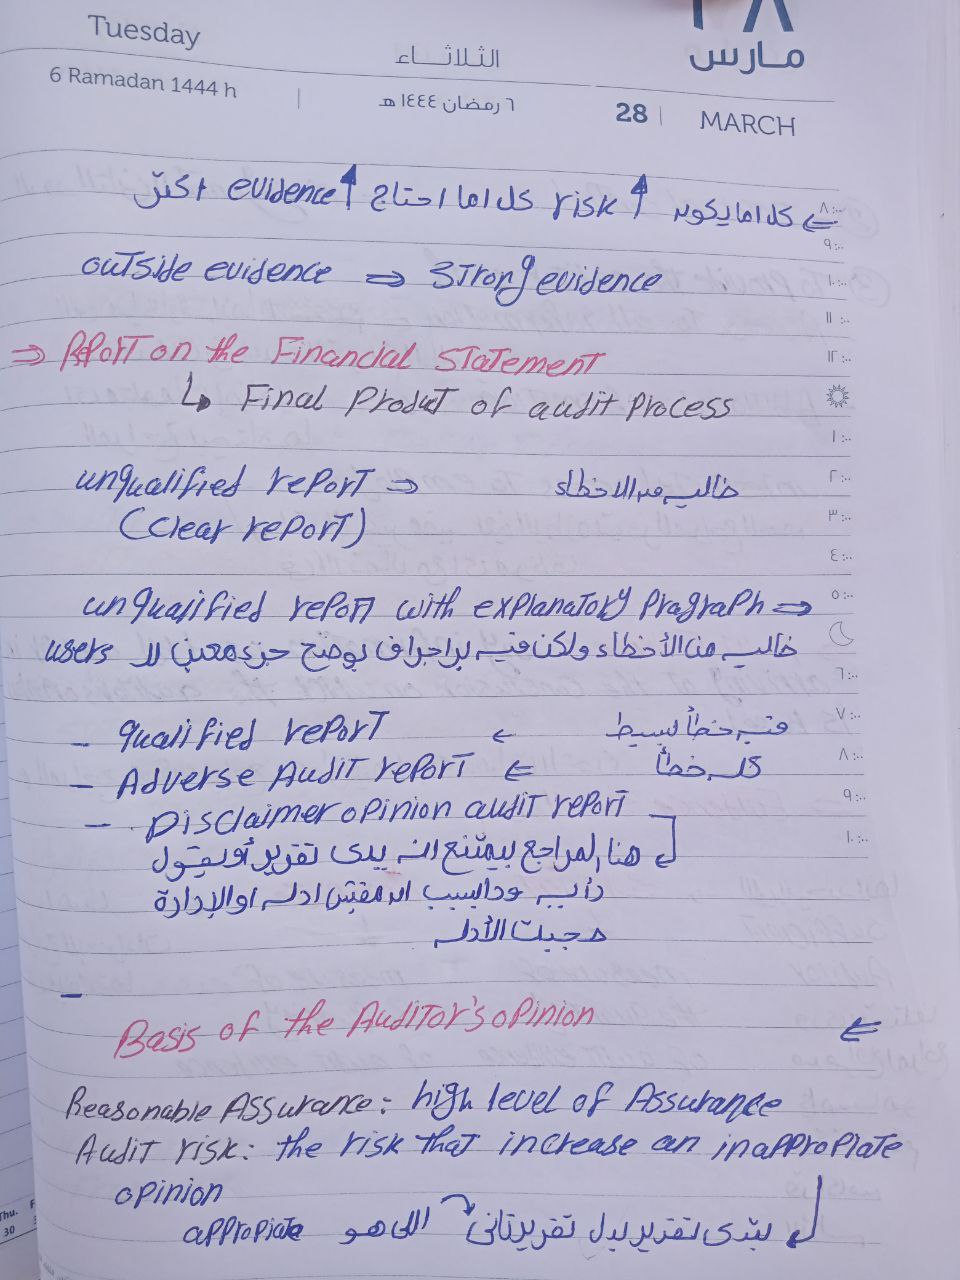 Tuesday
الثلاثاء
٢٨
مارس
6 Ramadan 1444 h
٦ رمضان ١٤٤٤ هـ
28 | MARCH
كل اما يكون risk ↑ كل اما احتاج evidence ↑ اكتر
٨:٠٠
٩:٠٠
outside evidence ⇒ strong evidence
١٠:٠٠
١١:٠٠
⇒ Report on the Financial Statement
١٢:٠٠
↳ Final Product of audit Process
١:٠٠
unqualified report ⇒ خالي من الاخطاء
٢:٠٠
(Clear report)
٣:٠٠
٤:٠٠
unqualified report with explanatory Pragraph ⇒
٥:٠٠
خالي من الأخطاء ولكن فيه براجراف يوضح جزء معين لل users
٦:٠٠
- qualified report ← فيه خطأ بسيط
٧:٠٠
- Adverse Audit report ⇐ كله خطأ
٨:٠٠
- Disclaimer opinion audit report
٩:٠٠
هنا المراجع بيمتنع انه يدى تقرير أو يقول
١٠:٠٠
رأيه ودا بسبب ان مفيش ادله او الإدارة
حجبت الأدله
-
Basis of the Auditor's opinion ⇐
Reasonable Assurance: high level of Assurance
Audit risk: the risk that increase an inappropiate
opinion
يبتدى تقرير بدل تقرير تانى اللى هو appropiate
Thu.
30